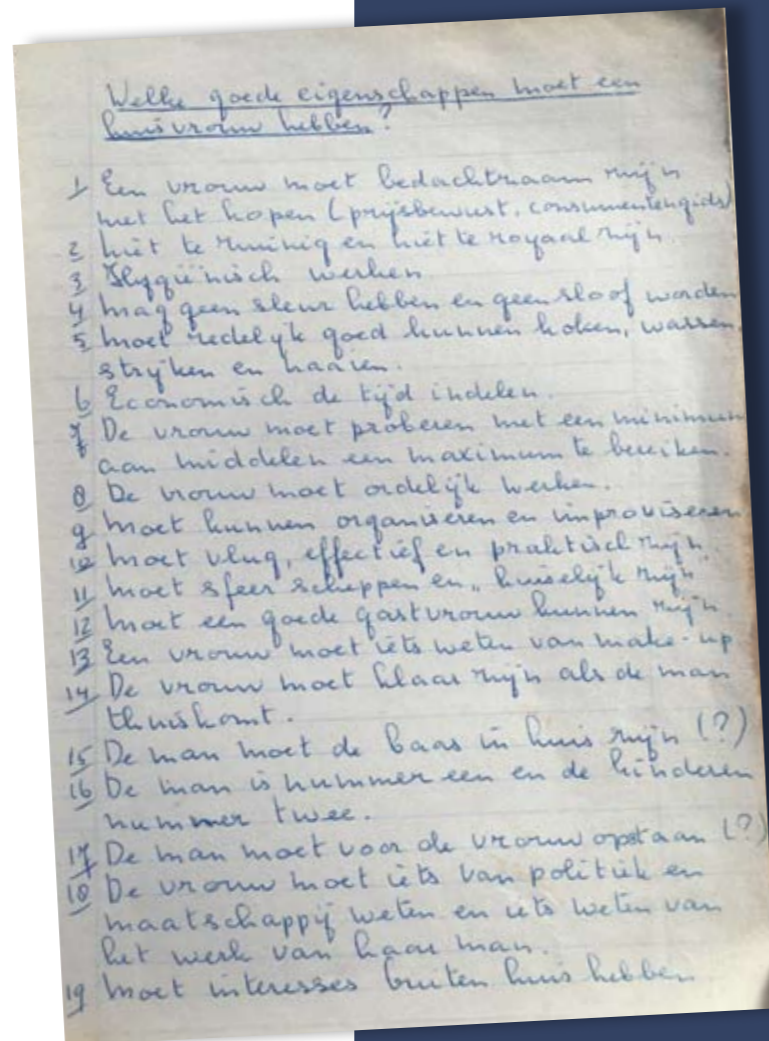 Welke goede eigenschappen moet een
huisvrouw hebben?
1 Een vrouw moet bedachtzaam zijn
met het kopen (prijsbewust, consumentengids)
2 niet te zuinig en niet te royaal zijn.
3 Hygiënisch werken
4 mag geen sleur hebben en geen sloof worden
5 moet redelijk goed kunnen koken, wassen,
strijken en naaien.
6 Economisch de tijd indelen.
7 De vrouw moet proberen met een minimum
aan middelen een maximum te bereiken.
8 De vrouw moet ordelijk werken.
9 moet kunnen organiseren en improviseren
10 moet vlug, effectief en praktisch zijn.
11 moet sfeer scheppen en „huiselijk zijn"
12 moet een goede gastvrouw kunnen zijn.
13 Een vrouw moet iets weten van make-up
14 De vrouw moet klaar zijn als de man
thuiskomt.
15 De man moet de baas in huis zijn (?)
16 De man is nummer een en de kinderen
nummer twee.
17 De man moet voor de vrouw opstaan (?)
18 De vrouw moet iets van politiek en
maatschappij weten en iets weten van
het werk van haar man.
19 moet interesses buiten huis hebben